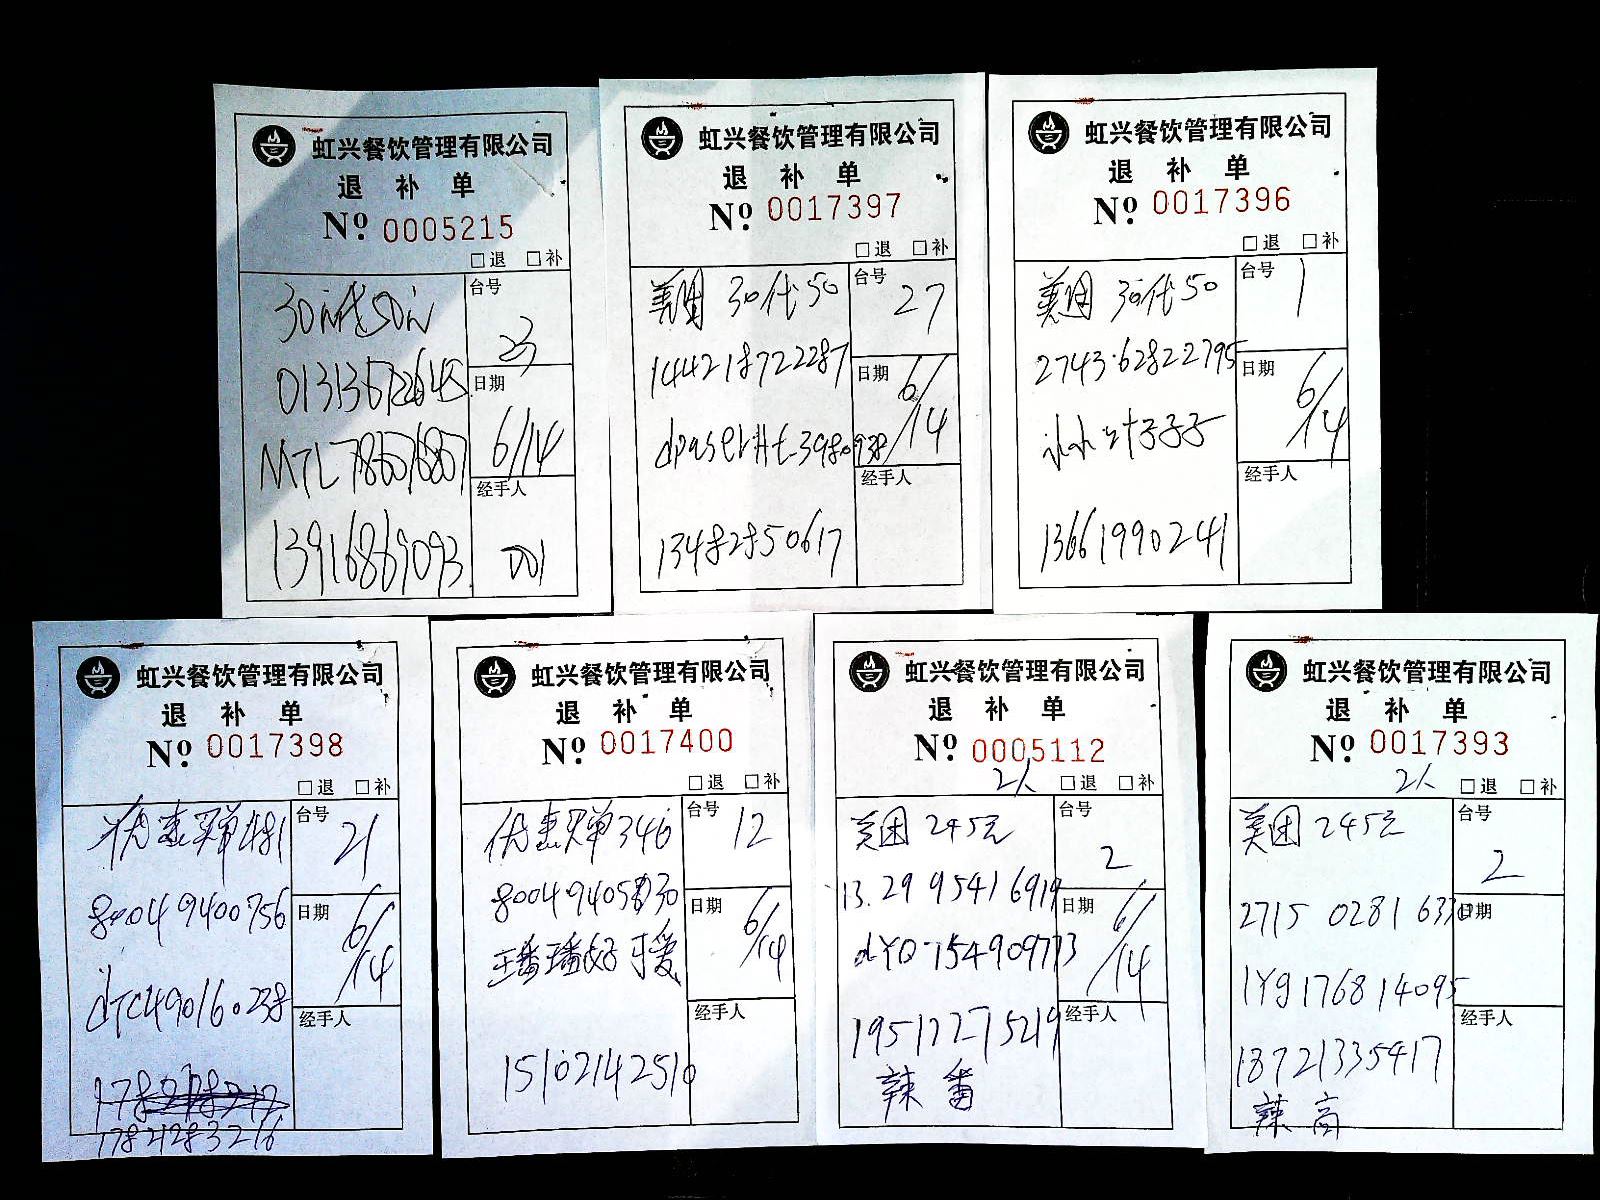 虹兴餐饮管理有限公司
退 补 单
Nº 0005215
□退 □补
30元代50元
台号
23
日期
6/14
MTL
经手人
13916869093
001
虹兴餐饮管理有限公司
退 补 单
Nº 0017397
□退 □补
美团 30代50
台号
27
144218722287
日期
6/14
经手人
13482850617
虹兴餐饮管理有限公司
退 补 单
Nº 0017396
□退 □补
美团 30代50
台号
1
2743·62822795
日期
6/14
经手人
13661990241
虹兴餐饮管理有限公司
退 补 单
Nº 0017398
□退 □补
优惠买单481
台号
21
80049400756
日期
6/14
dTC490160238
经手人
17821283216
虹兴餐饮管理有限公司
退 补 单
Nº 0017400
□退 □补
优惠买单346
台号
12
日期
6/14
璠璠好可爱
经手人
15102142510
虹兴餐饮管理有限公司
退 补 单
Nº 0005112
2人
□退 □补
美团 245元
台号
2
13.29 9541 6919
日期
6/14
dYQ-154909773
19517275219
经手人
辣 番
虹兴餐饮管理有限公司
退 补 单
Nº 0017393
2人
□退 □补
美团 245元
台号
2
2715 0281 6330
日期
1Yg176814095
经手人
18721335417
辣 高